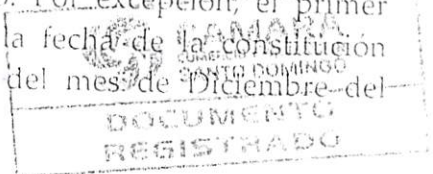 Por excepción, el primer
la fecha de la constitución
del mes de Diciembre del
CÁMARA
SANTO DOMINGO
DOCUMENTO
REGISTRADO